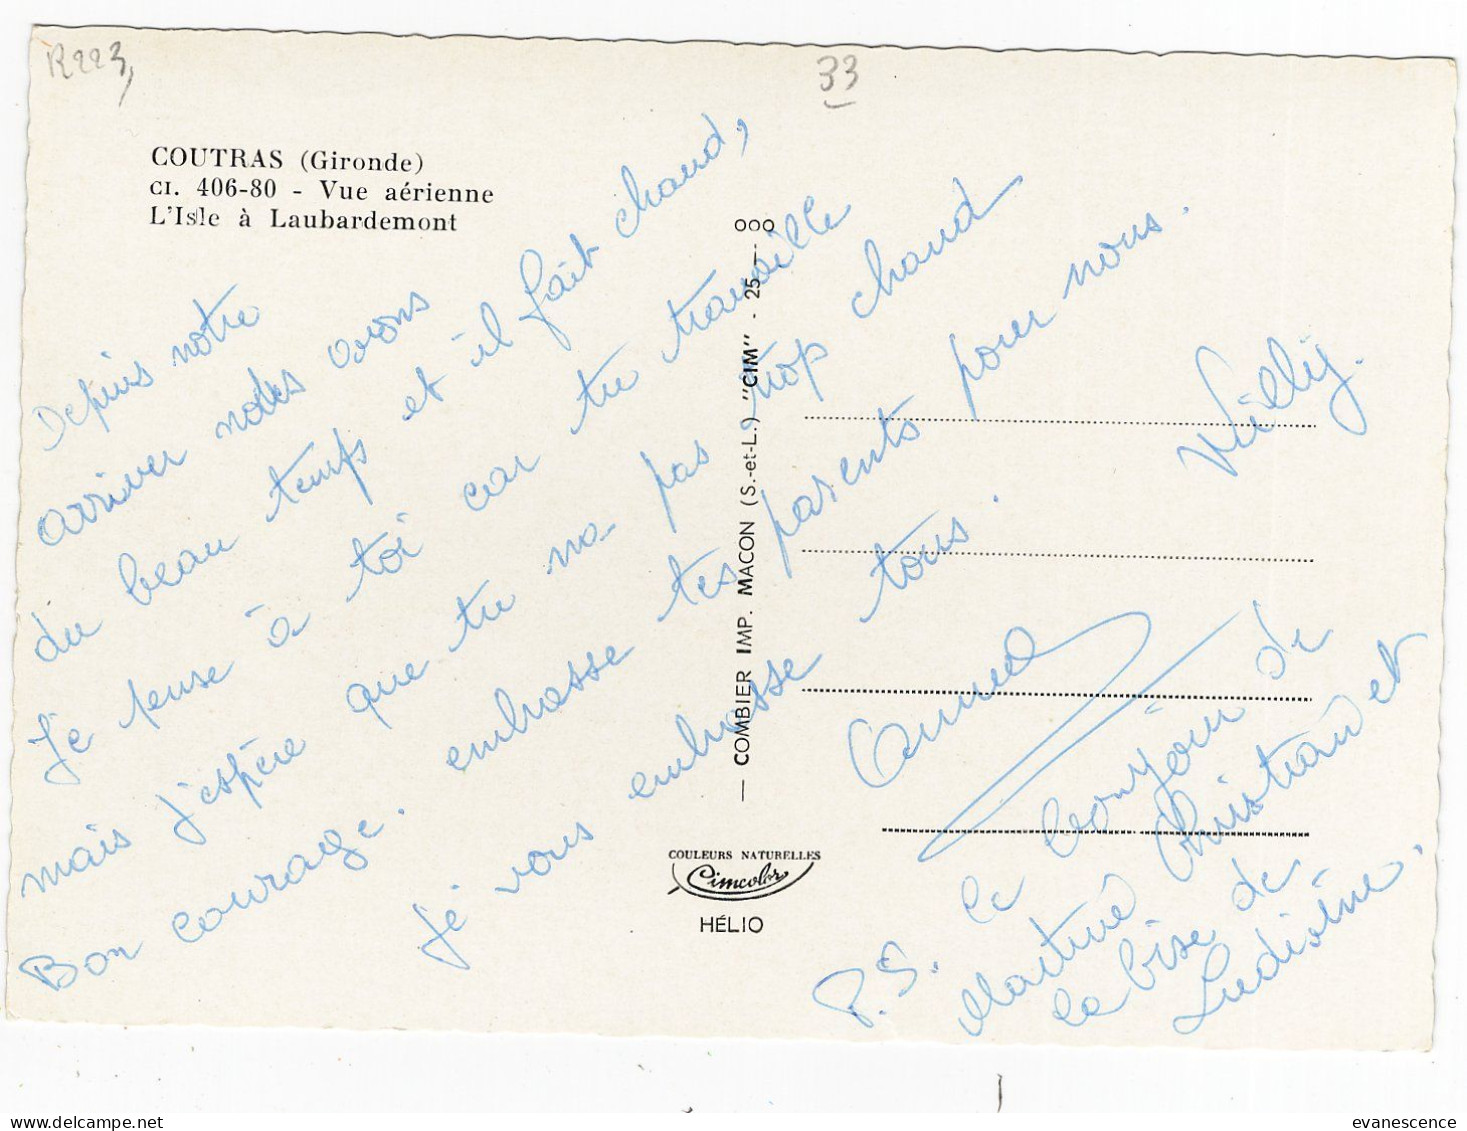 R223,
33
COUTRAS (Gironde)
CI. 406-80 - Vue aérienne
L'Isle à Laubardemont
Depuis notre
arriver nous avons
du beau temps et il fait chaud,
Je pense à toi car tu travaille
mais j'espère que tu na pas trop chaud
Bon courage. embrasse tes parents pour nous.
Je vous embrasse tous.
Willy.
P.S. le bonjour de
Martine Christian et
la bise de
Ludivine.
— COMBIER IMP. MACON (S.-et-L.) "CIM" - 25 —
COULEURS NATURELLES
Cimcolor
HÉLIO
evanescence